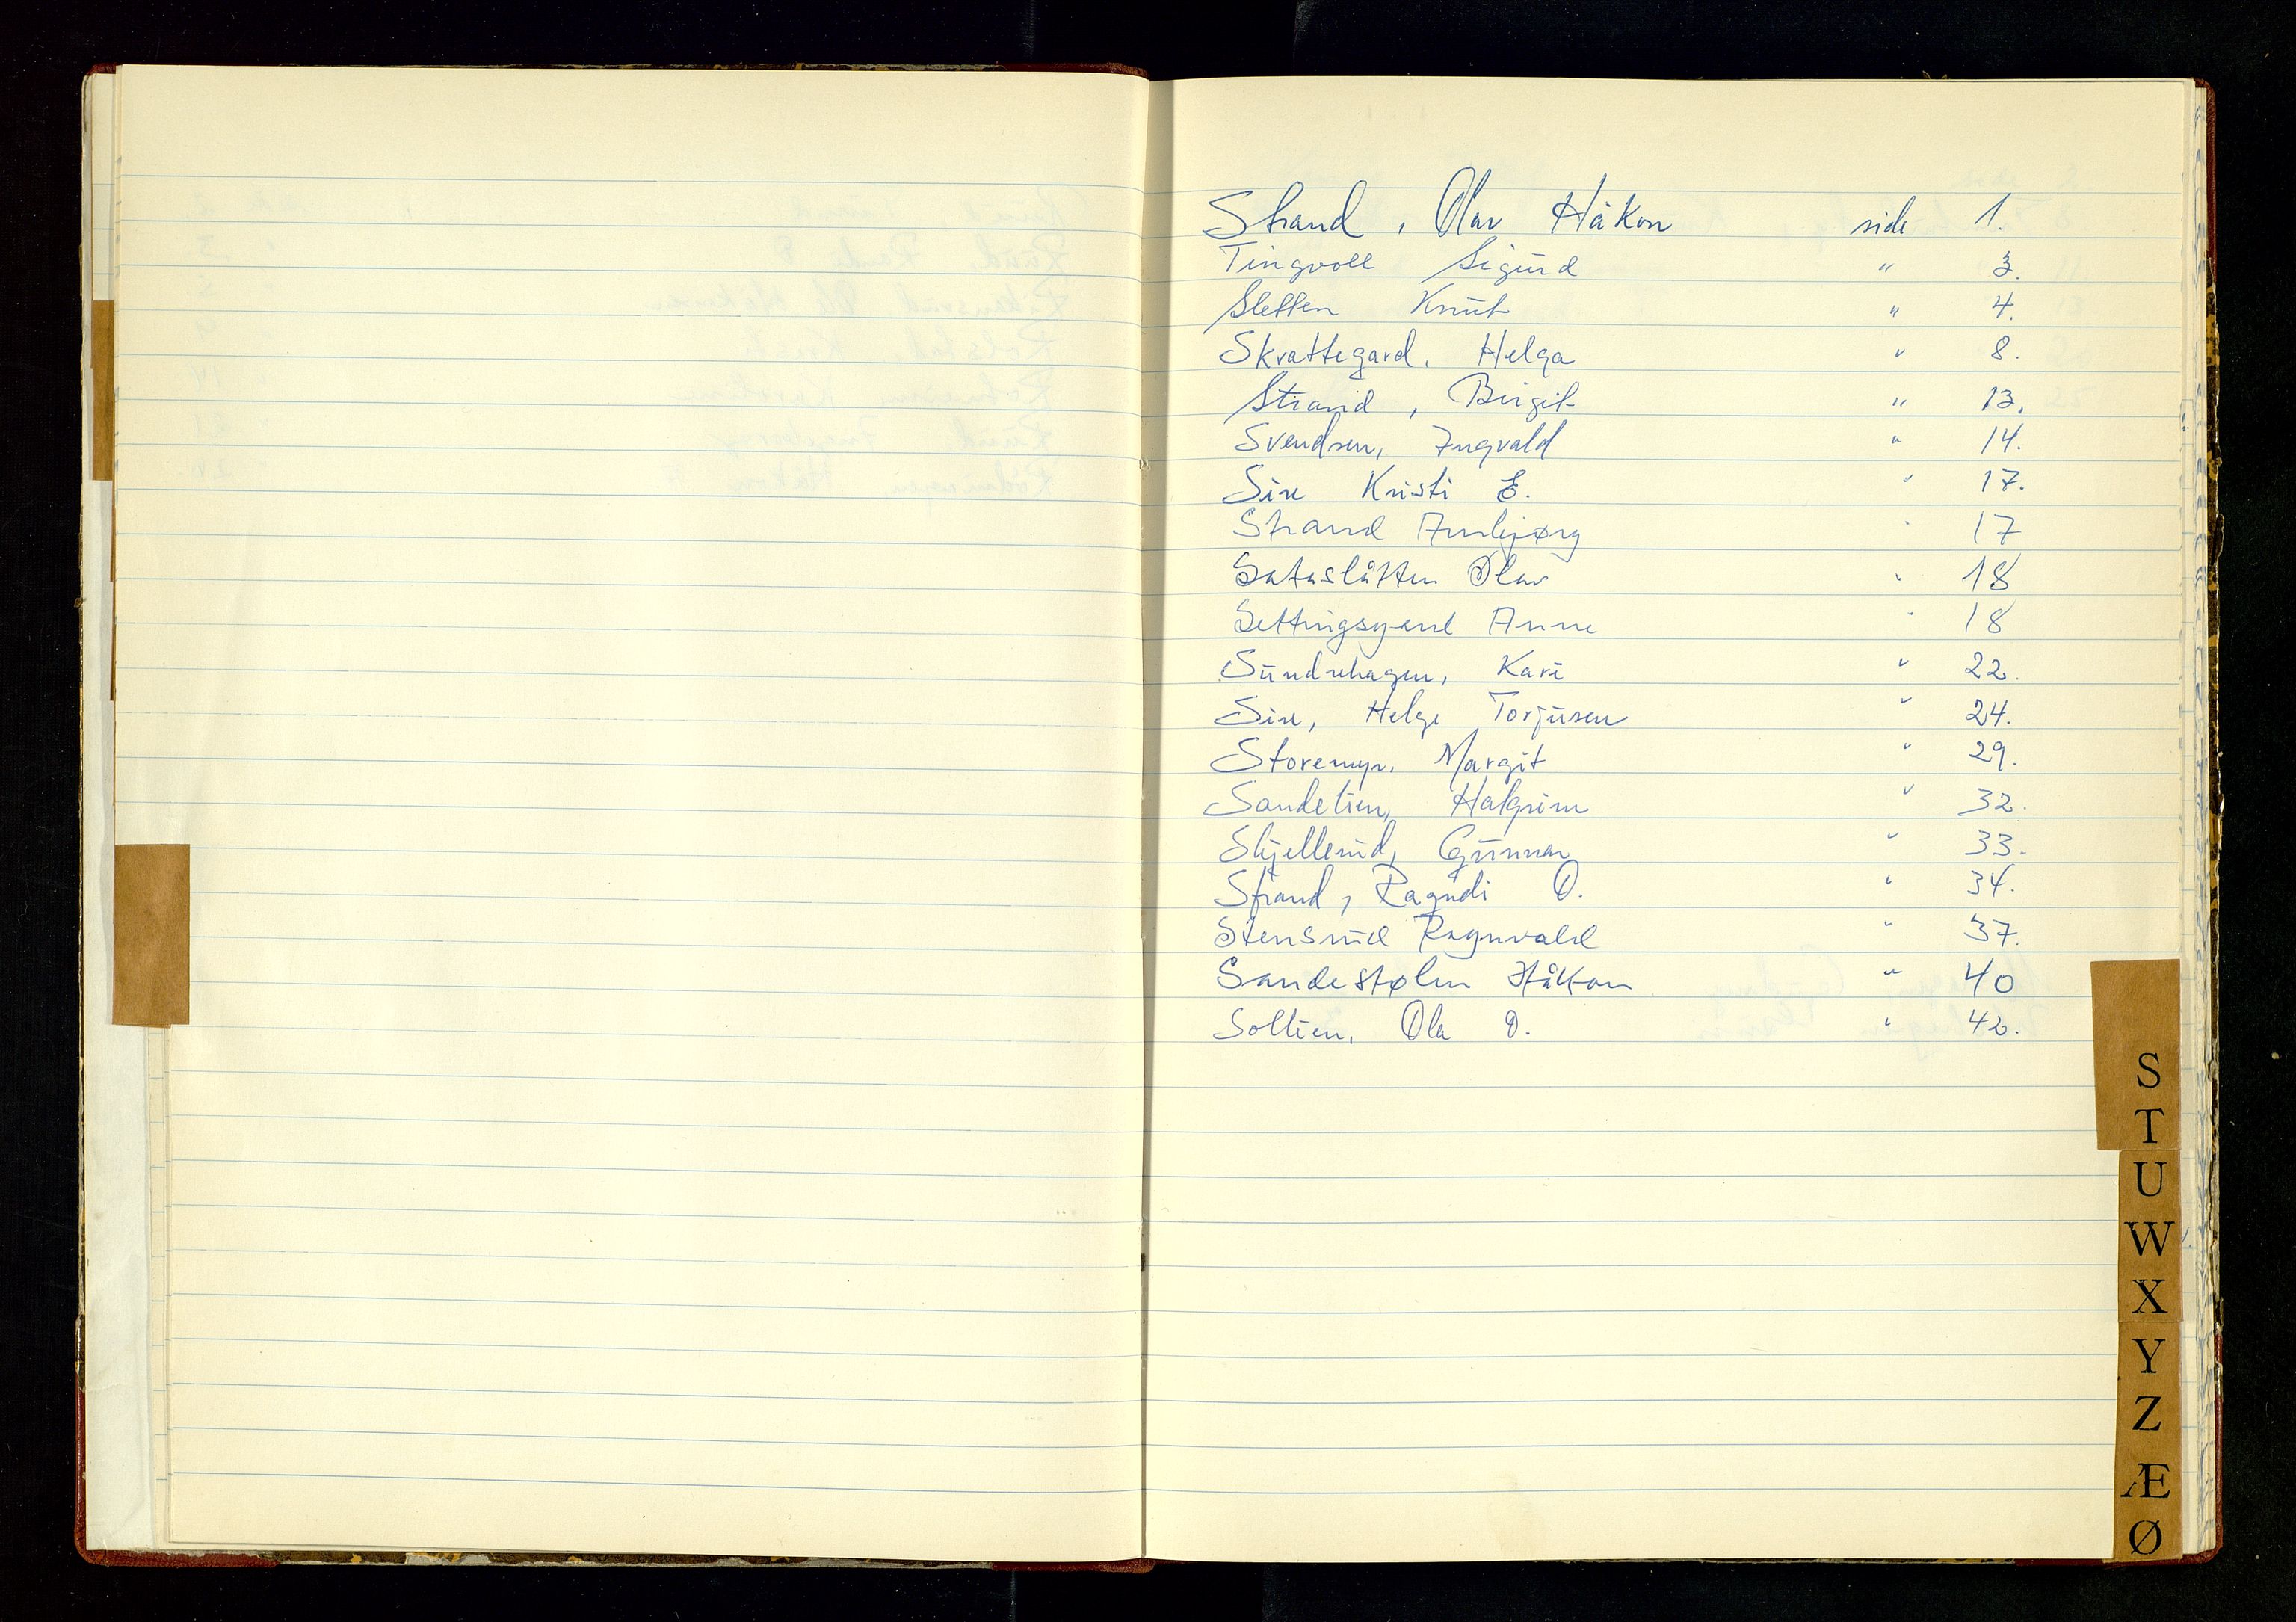 Strand, Olav Håkon side 1.
Tingvoll Sigurd " 3.
Sletten Knut " 4.
Skrattegard, Helga " 8.
Strand, Birgit " 13.
Svendsen, Ingvald " 14.
Sire Kristi E. " 17.
Strand Annbjørg " 17
Sataslåtten Olav " 18
Settingsgard Anne " 18
Sundrehagen, Kari " 22.
Sire, Helge Torjusen " 24.
Storemyr, Margit " 29.
Sandelien, Halgrim " 32.
Skjellerud, Gunnar " 33.
Strand, Ragndi O. " 34.
Stensrud Ragnvald " 37.
Sandestølen Håkon " 40
Soltien, Ola O. " 42.
S
T
U
W
X
Y
Z
Æ
Ø